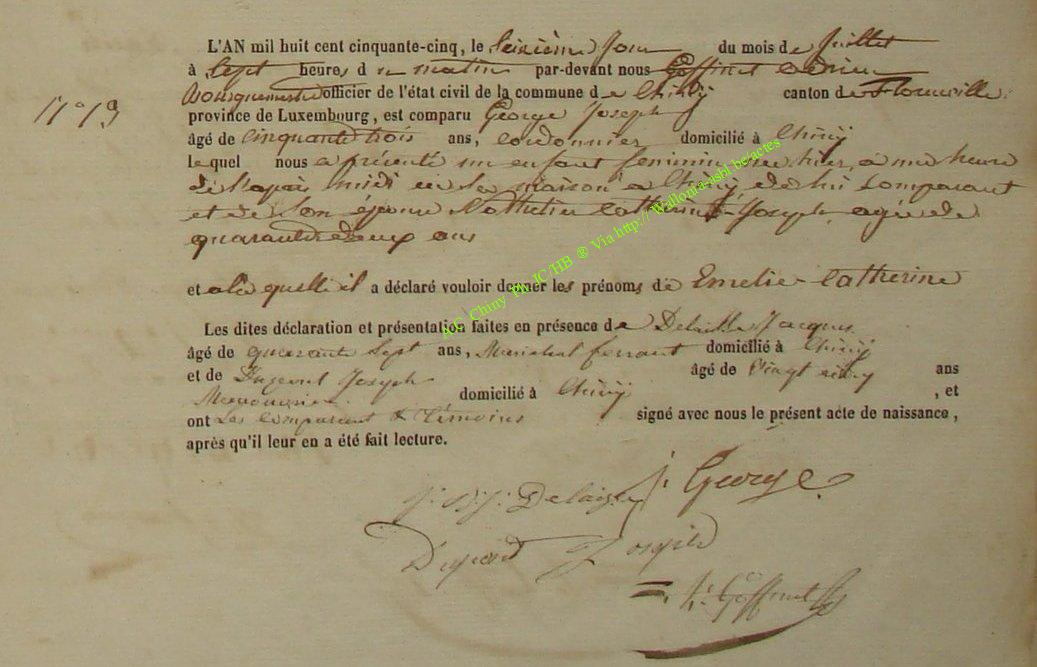 L'AN mil huit cent cinquante-cinq, le seizième Jour du mois de Juillet
à sept heures du matin par-devant nous Goffinet
Bourguemestre officier de l'état civil de la commune de Chiny canton de Florenville
N° 19
province de Luxembourg, est comparu George Joseph
âgé de cinquante trois ans, cordonnier domicilié à Chiny
lequel nous a présenté un enfant feminin né hier, à une heure
de l'après midi en sa maison a Chiny de lui Comparant
et de Son épouse Catherine Joseph agée de
quarante deux ans
et a la quelle il a déclaré vouloir donner les prénoms de Emelie Catherine
Les dites déclaration et présentation faites en présence de Jacques
âgé de quarante Sept ans, Marichal ferrant domicilié à Chiny
et de Joseph âgé de Vingt cinq ans
Manouvrier domicilié à Chiny, et
ont Les Comparant & Témoins signé avec nous le présent acte de naissance,
après qu'il leur en a été fait lecture.
J. George
Joseph
Goffinet
A.G. Chiny Ph JC/HB ® Via http://Wallonia-asbl.be/actes